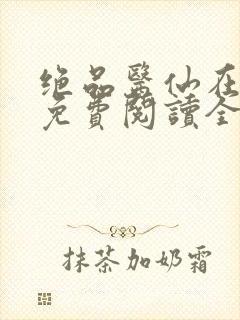 绝品醫仙在
免費閱讀全
抹茶加奶霜